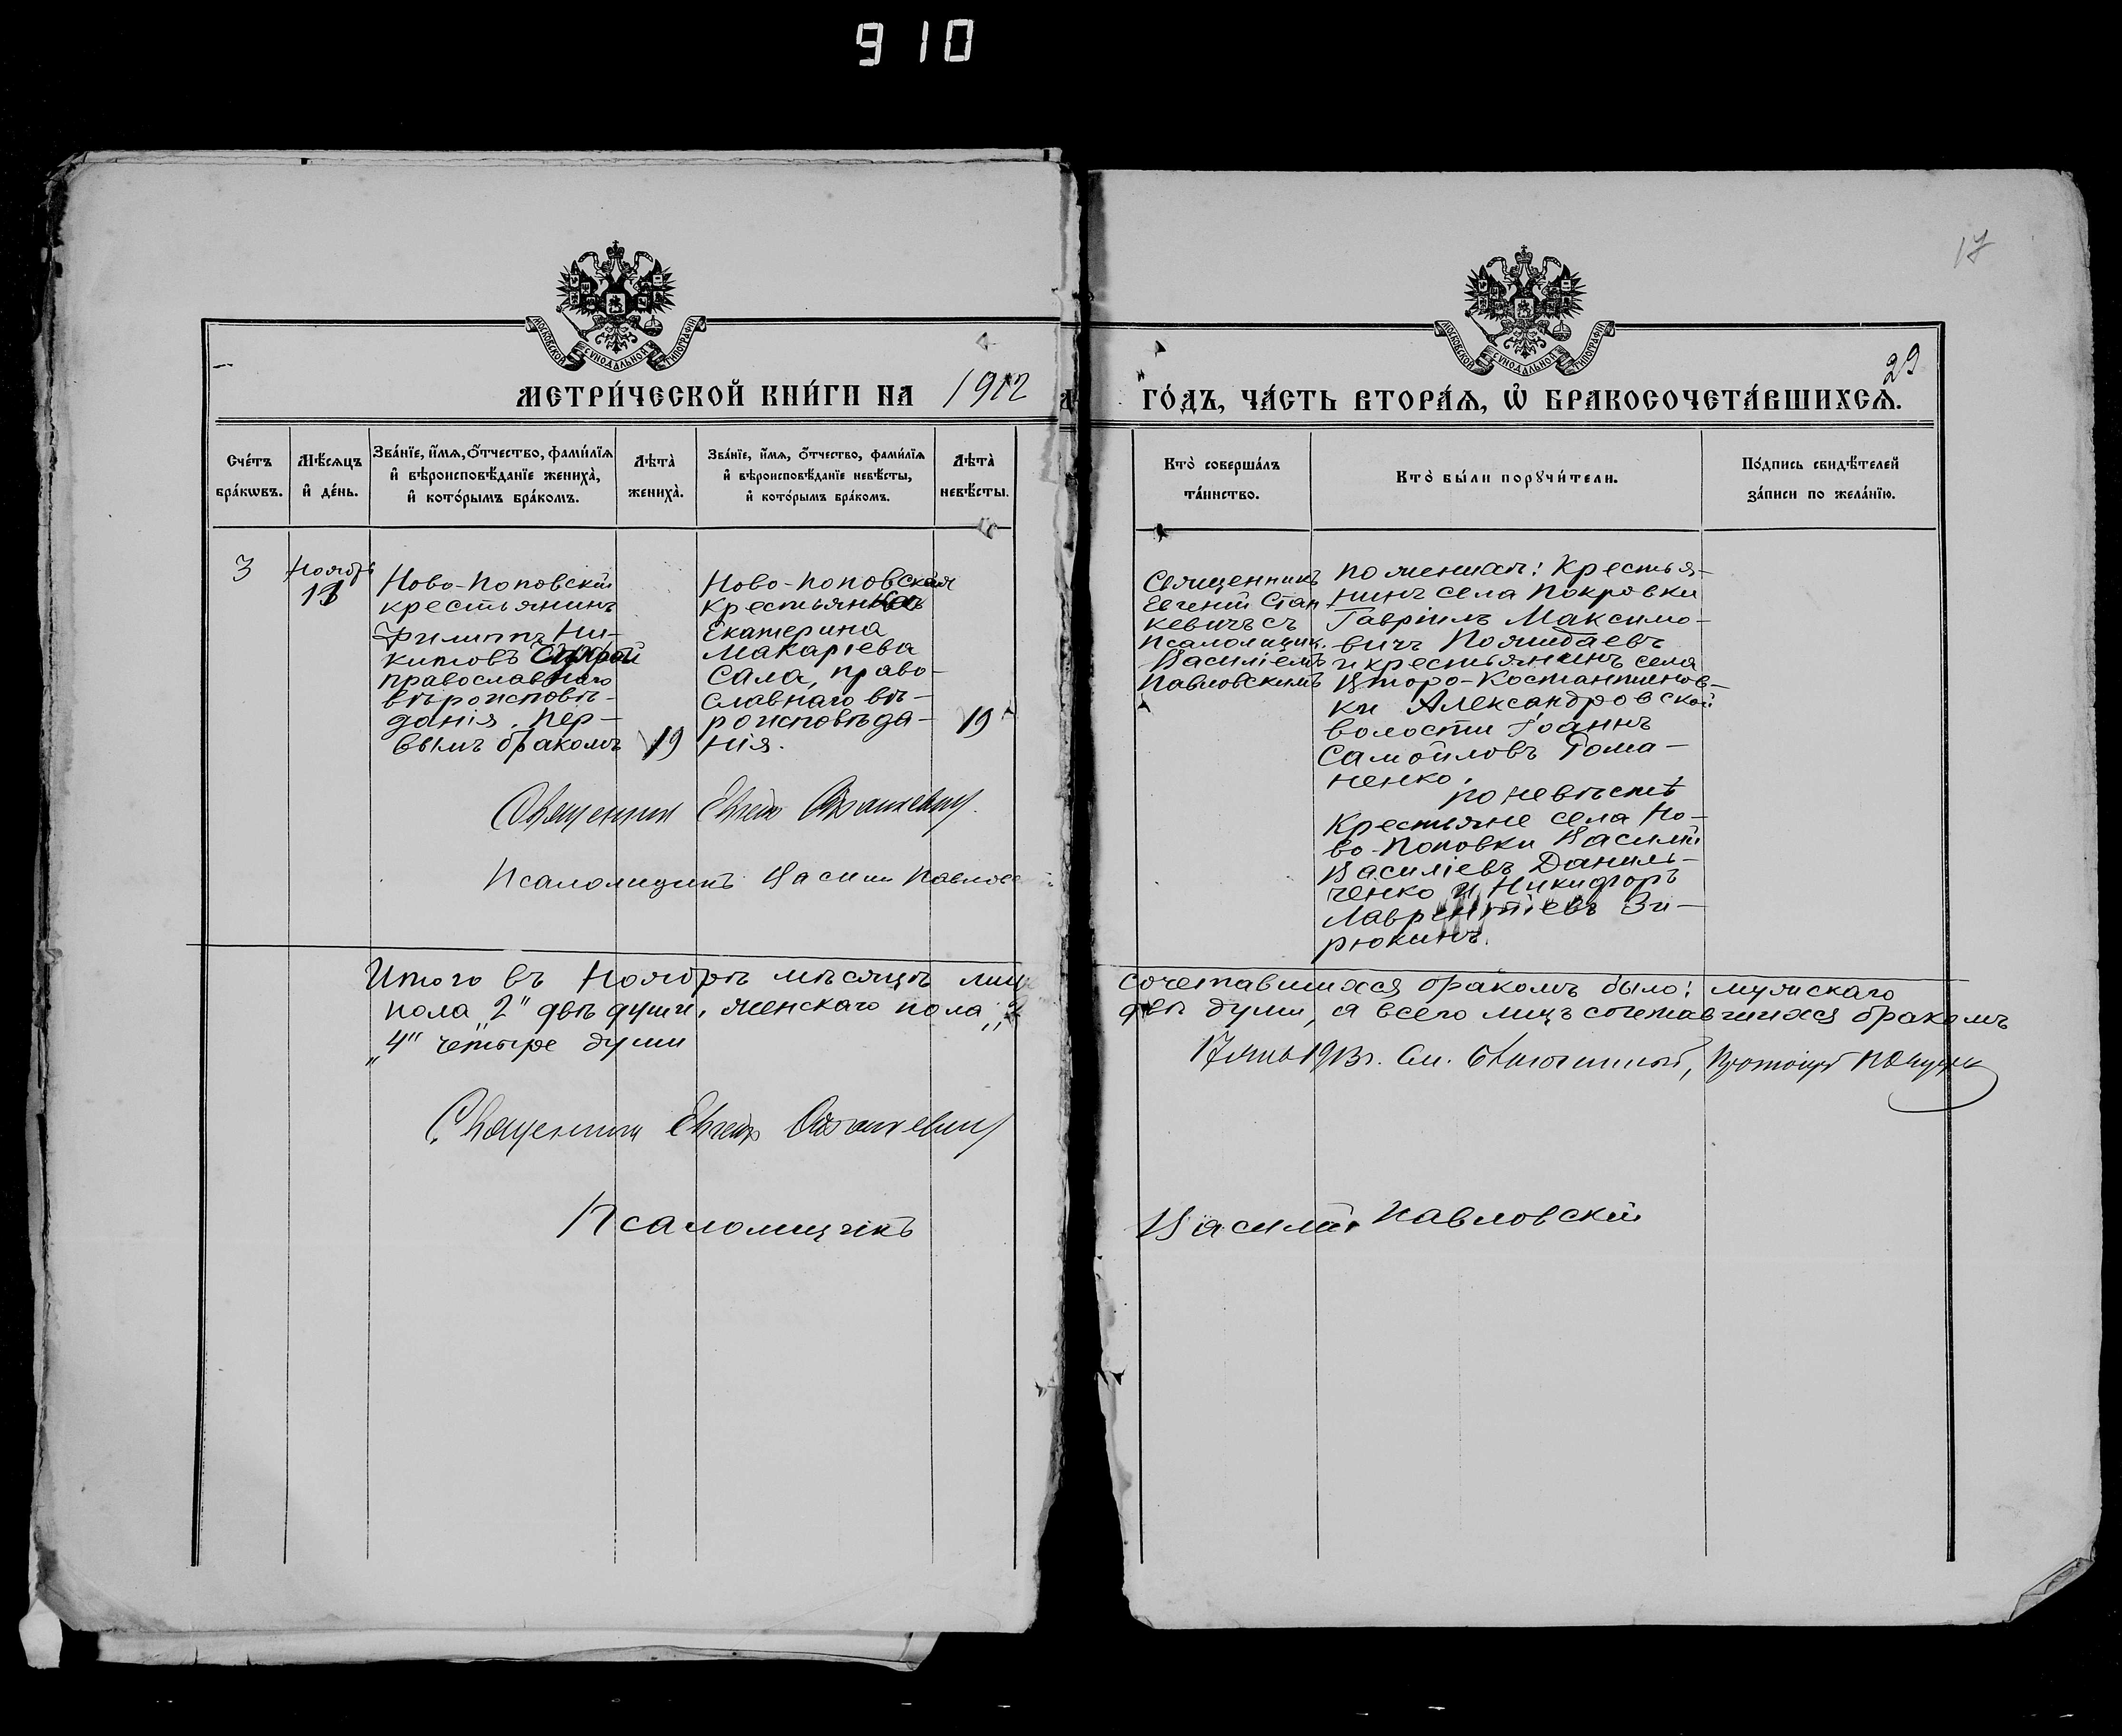 910
17
МОСКОВСКОЙ СУНОДАЛЬНОЙ ТИПОГРАФІИ
МОСКОВСКОЙ СУНОДАЛЬНОЙ ТИПОГРАФІИ
29
МЕТРИ́ЧЕСКОЙ КНИ́ГИ НА 1912
ГО́ДЪ, ЧА́СТЬ ВТОРА́Ѧ, Ѽ БРАКОСОЧЕТА́ВШИХСѦ.
Сче́тъ
бра́кѡвъ.
Мѣ́сѧцъ
и҆ де́нь.
Зва́нїе, и҆́мѧ, ѻ҆́тчество, фами́лїѧ
и҆ вѣроисповѣ́данїе жениха̀,
и҆ кото́рымъ бра́комъ.
Лѣта̀
жениха̀.
Зва́нїе, и҆́мѧ, ѻ҆́тчество, фами́лїѧ
и҆ вѣроисповѣ́данїе невѣ́сты,
и҆ кото́рымъ бра́комъ.
Лѣта̀
невѣ́сты.
Кто̀ соверша́лъ
та́инство.
Кто̀ бы́ли порꙋчи́тели.
По́дпись свидѣ́телей
за́писи по жела́нїю.
3
Ноябрь
Ново-Поповскій
крестьянинъ
Филиппъ Ни-
китовъ
православнаго
вѣроисповѣ-
данія. Пер-
вымъ бракомъ
19
Ново-Поповская
крестьянка
Екатерина
Макаріева
Сала, право-
славнаго вѣ-
роисповѣда-
нія.
19
Священникъ
Евгеній Стан
кевичъ съ
Псаломщик.
Василіемъ
Павловскимъ
По женихѣ: Крестья-
нинъ села Покровки
Гавріилъ Максимо-
вичъ
и крестьянинъ села
Второ-Костантинов-
ки Александровской
волости Іоаннъ
Самойловъ Рома-
ненко.
По невѣстѣ
Крестьяне села Но-
во-Поповки Василій
Василіевъ Даниль-
ченко и Никифоръ
Лаврентіевъ Зи-
рюкинъ.
Священникъ Евгеній Станкевичъ.
Псаломщикъ Василій Павловс
Итого въ Ноябрѣ мѣсяцѣ лицъ сочетавшихся бракомъ было: мужскаго
пола „2" двѣ души, женскаго пола „2 двѣ души, а всего лицъ сочетавшихся бракомъ
„4" четыре души
1913 г.
Священникъ Евгеній Станкевичъ
Псаломщикъ Василій Павловскій